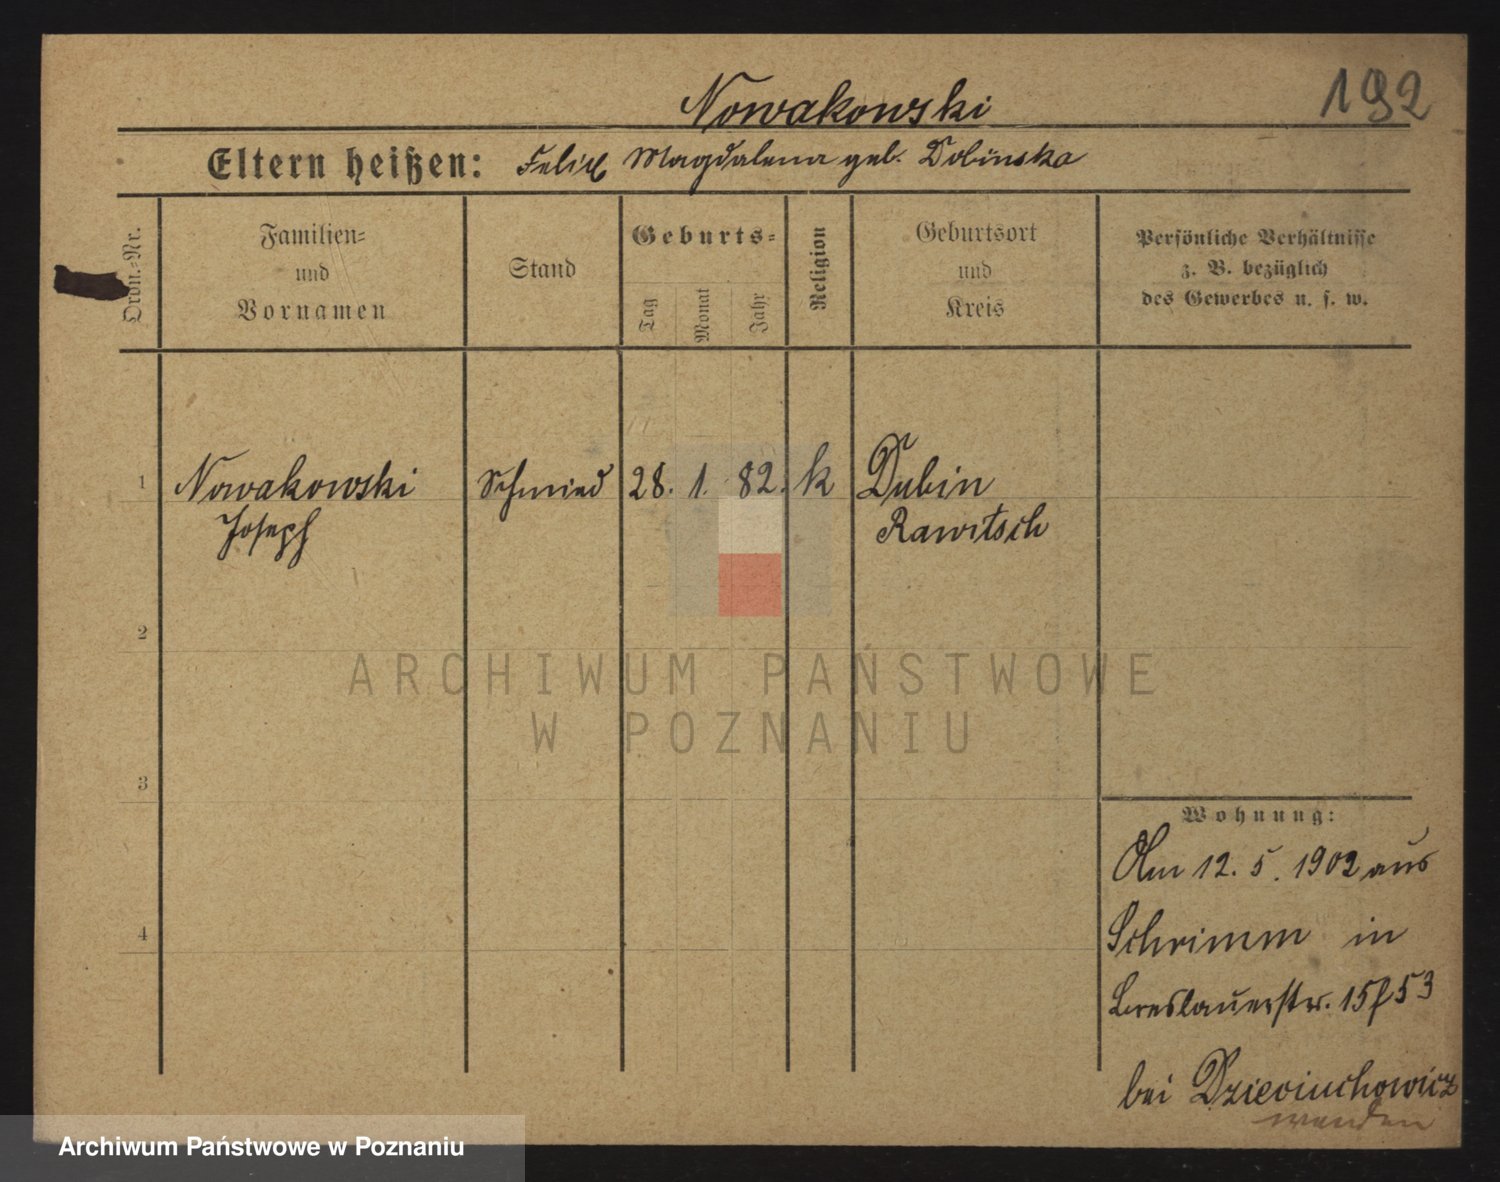 192
Nowakowski
Eltern heißen: Felix Magdalena geb. Dobinska
Ordn.-Nr.
Familien-
und
Vornamen
Stand
Geburts-
Tag
Monat
Jahr
Religion
Geburtsort
und
Kreis
Persönliche Verhältnisse
z. B. bezüglich
des Gewerbes u. s. w.
1 Nowakowski Schmied 28. 1. 82. k Dubin
Joseph Rawitsch
2
3
4
Wohnung:
Am 12. 5. 1902 aus
Schrimm in
Breslauerstr. 15
bei
wenden
ARCHIWUM PAŃSTWOWE
W POZNANIU
Archiwum Państwowe w Poznaniu